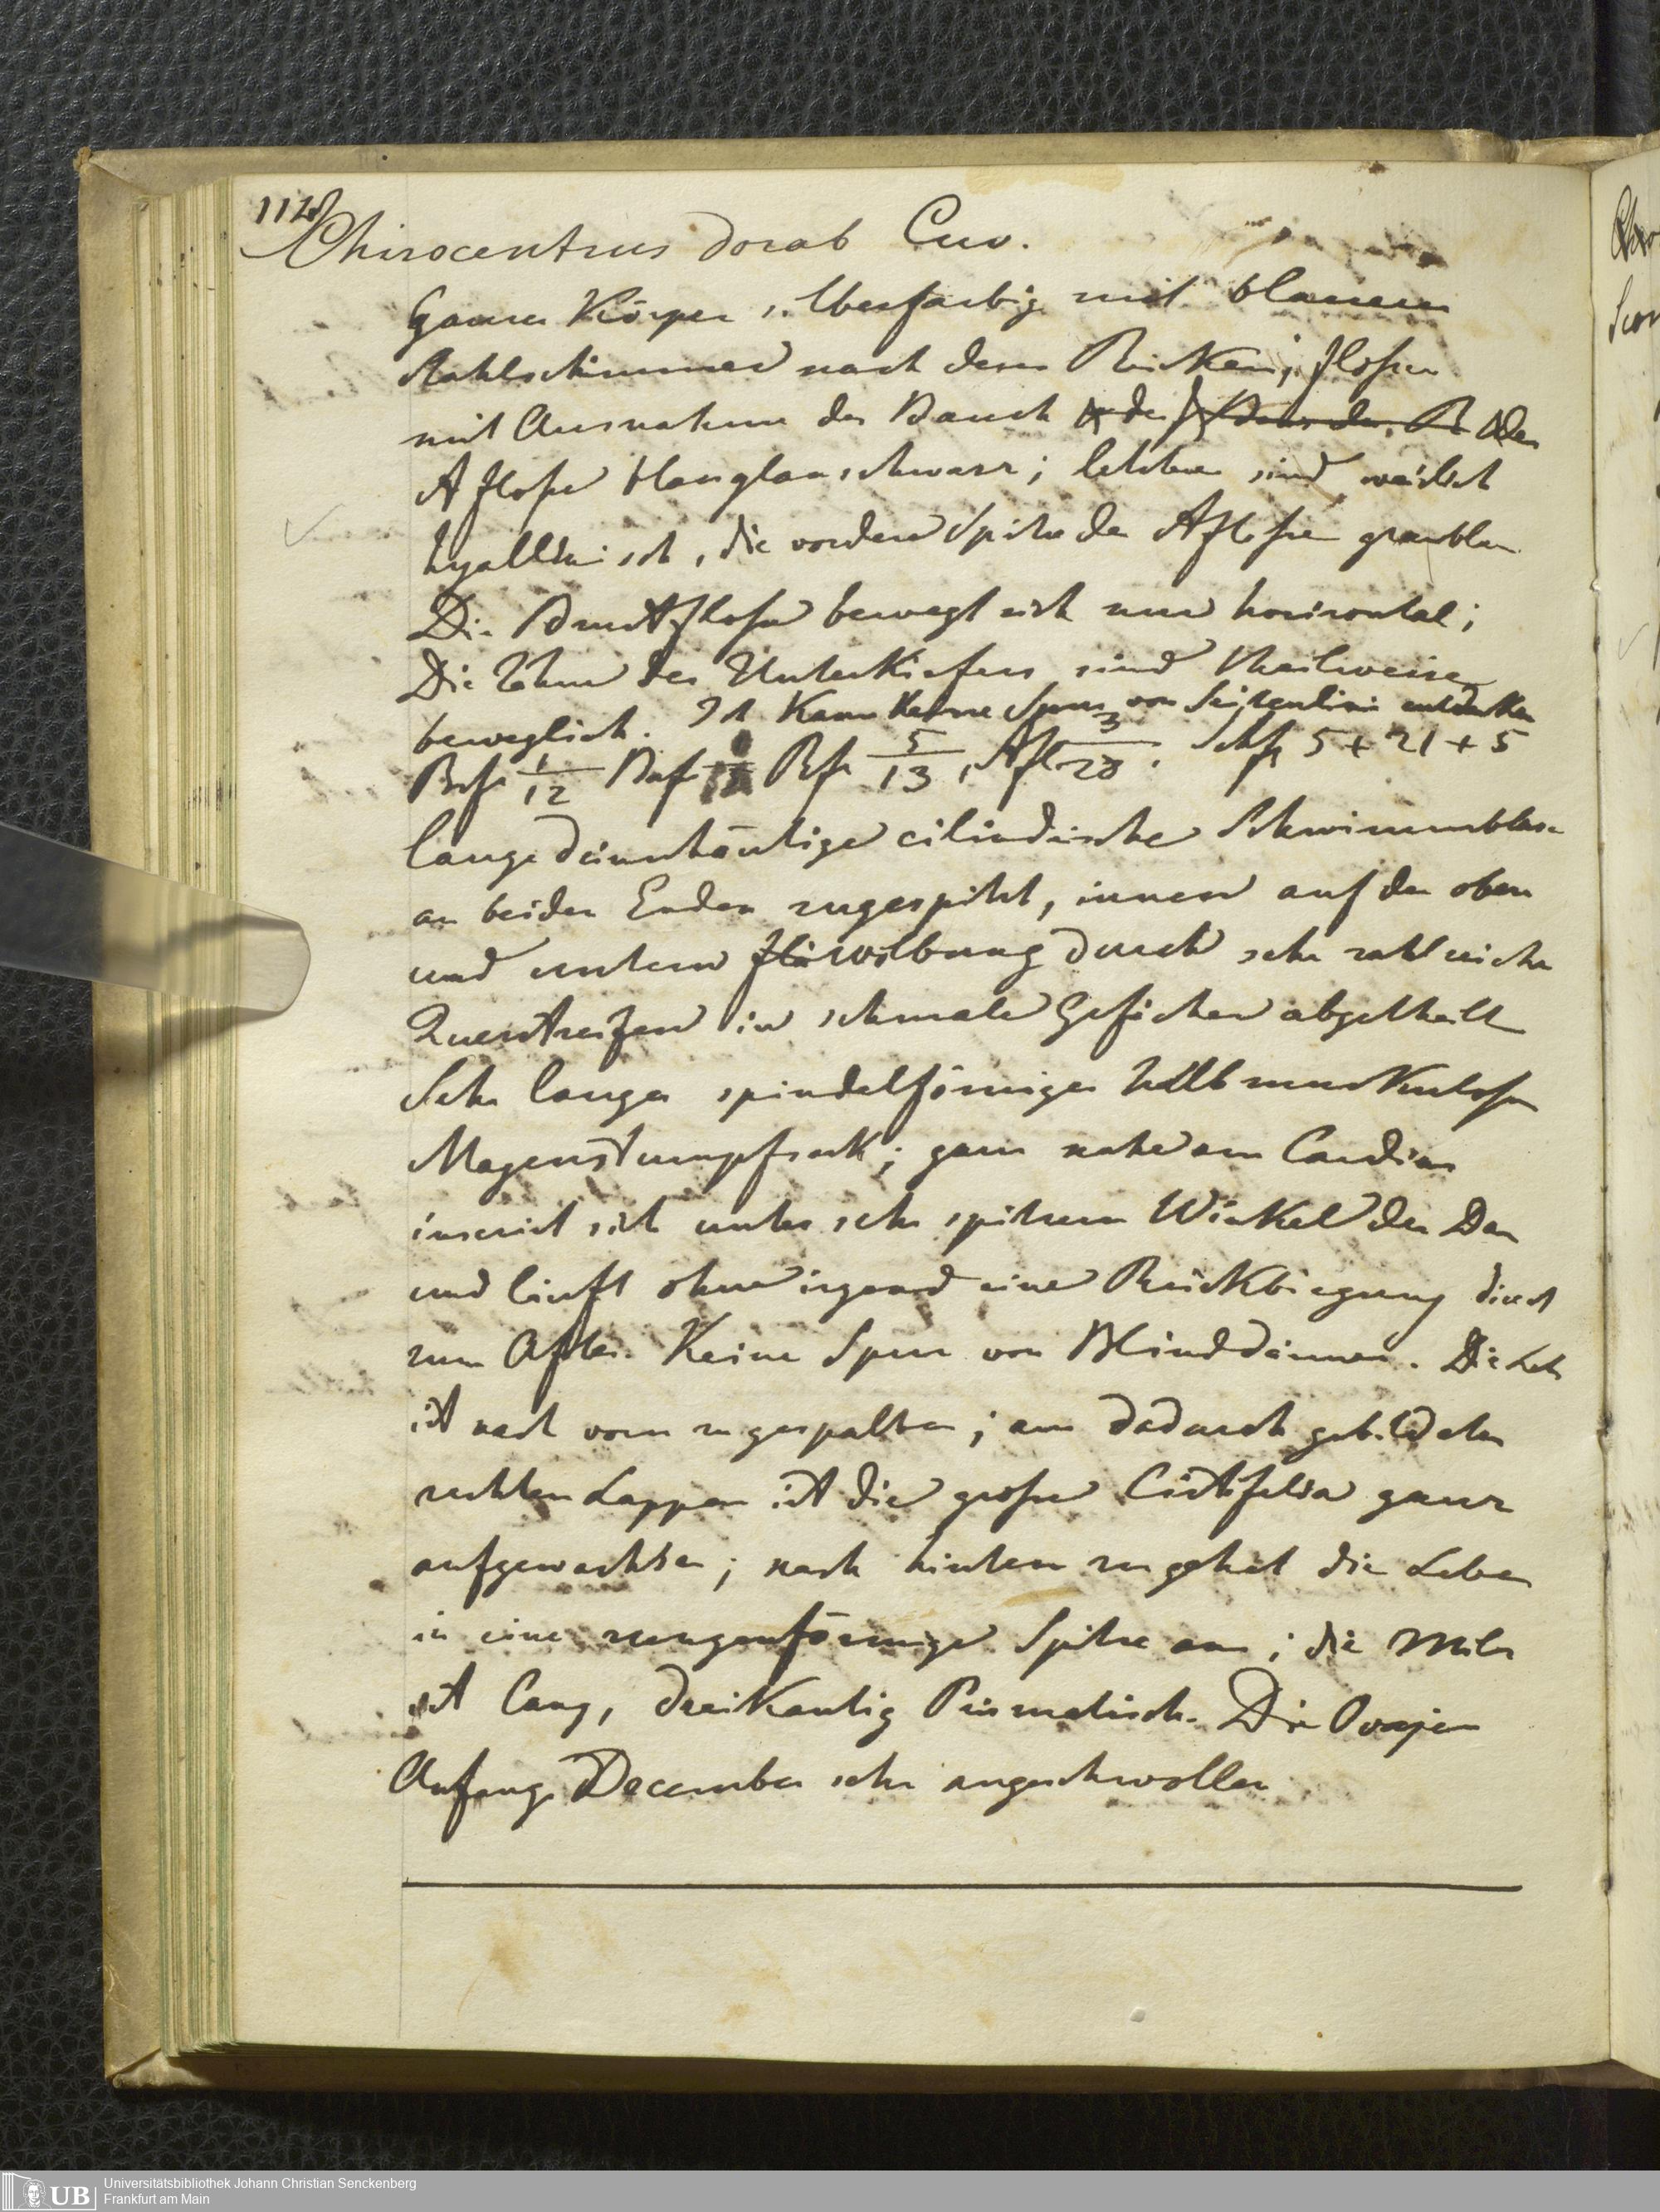 112
Chirocentrus dorab Cuv.
Ganzer Körper silberfarbig mit blauem
Stahlschimmer nach dem Rücken; Flosse
mit Ausnahme der Bauch & der
A Flosse blauglanschwarz; letztere sind weislich
hyallinisch, die vordere Spitze der AFlosse graublau
Die BrustFlosse bewegt sich nur horizontal;
Die Zähne des Unterkiefers sind theilweise
beweglich. Ich kann keine Spur von Seitenlinie entdecken
Brfl 1/12 Bafl Rfl 5/13, Afl 3/28. Schfl 5 + 21 + 5
lange dünnhäutige cilindrische Schwimmblase
an beiden Enden zugespitzt, innen auf der obern
und untern Wölbung durch sehr zahlreiche
Querstreifen in schmale Gefächer abgetheilt
Sehr langer spindelförmiger halb muskuloser
Magenstumpfsack; ganz nahe am Cardias
inserirt sich unter sehr spitzem Winkel der Dar
und läuft ohne irgend eine Rückbiegung direct
zum After. Keine Spur von Blinddärmen. Die Leb
ist nach vorn zu gespalten; am dadurch gebildeten
rechten Lappen ist die grosse Cistifelia ganz
aufgewachsen; nach hinten zu gehet die Leber
in eine zungenförmige Spitze aus; die Milz
ist lang, dreikantig Prismatisch. Die Ovarien
Anfangs December sehr angeschwollen
UB Universitätsbibliothek Johann Christian Senckenberg
Frankfurt am Main